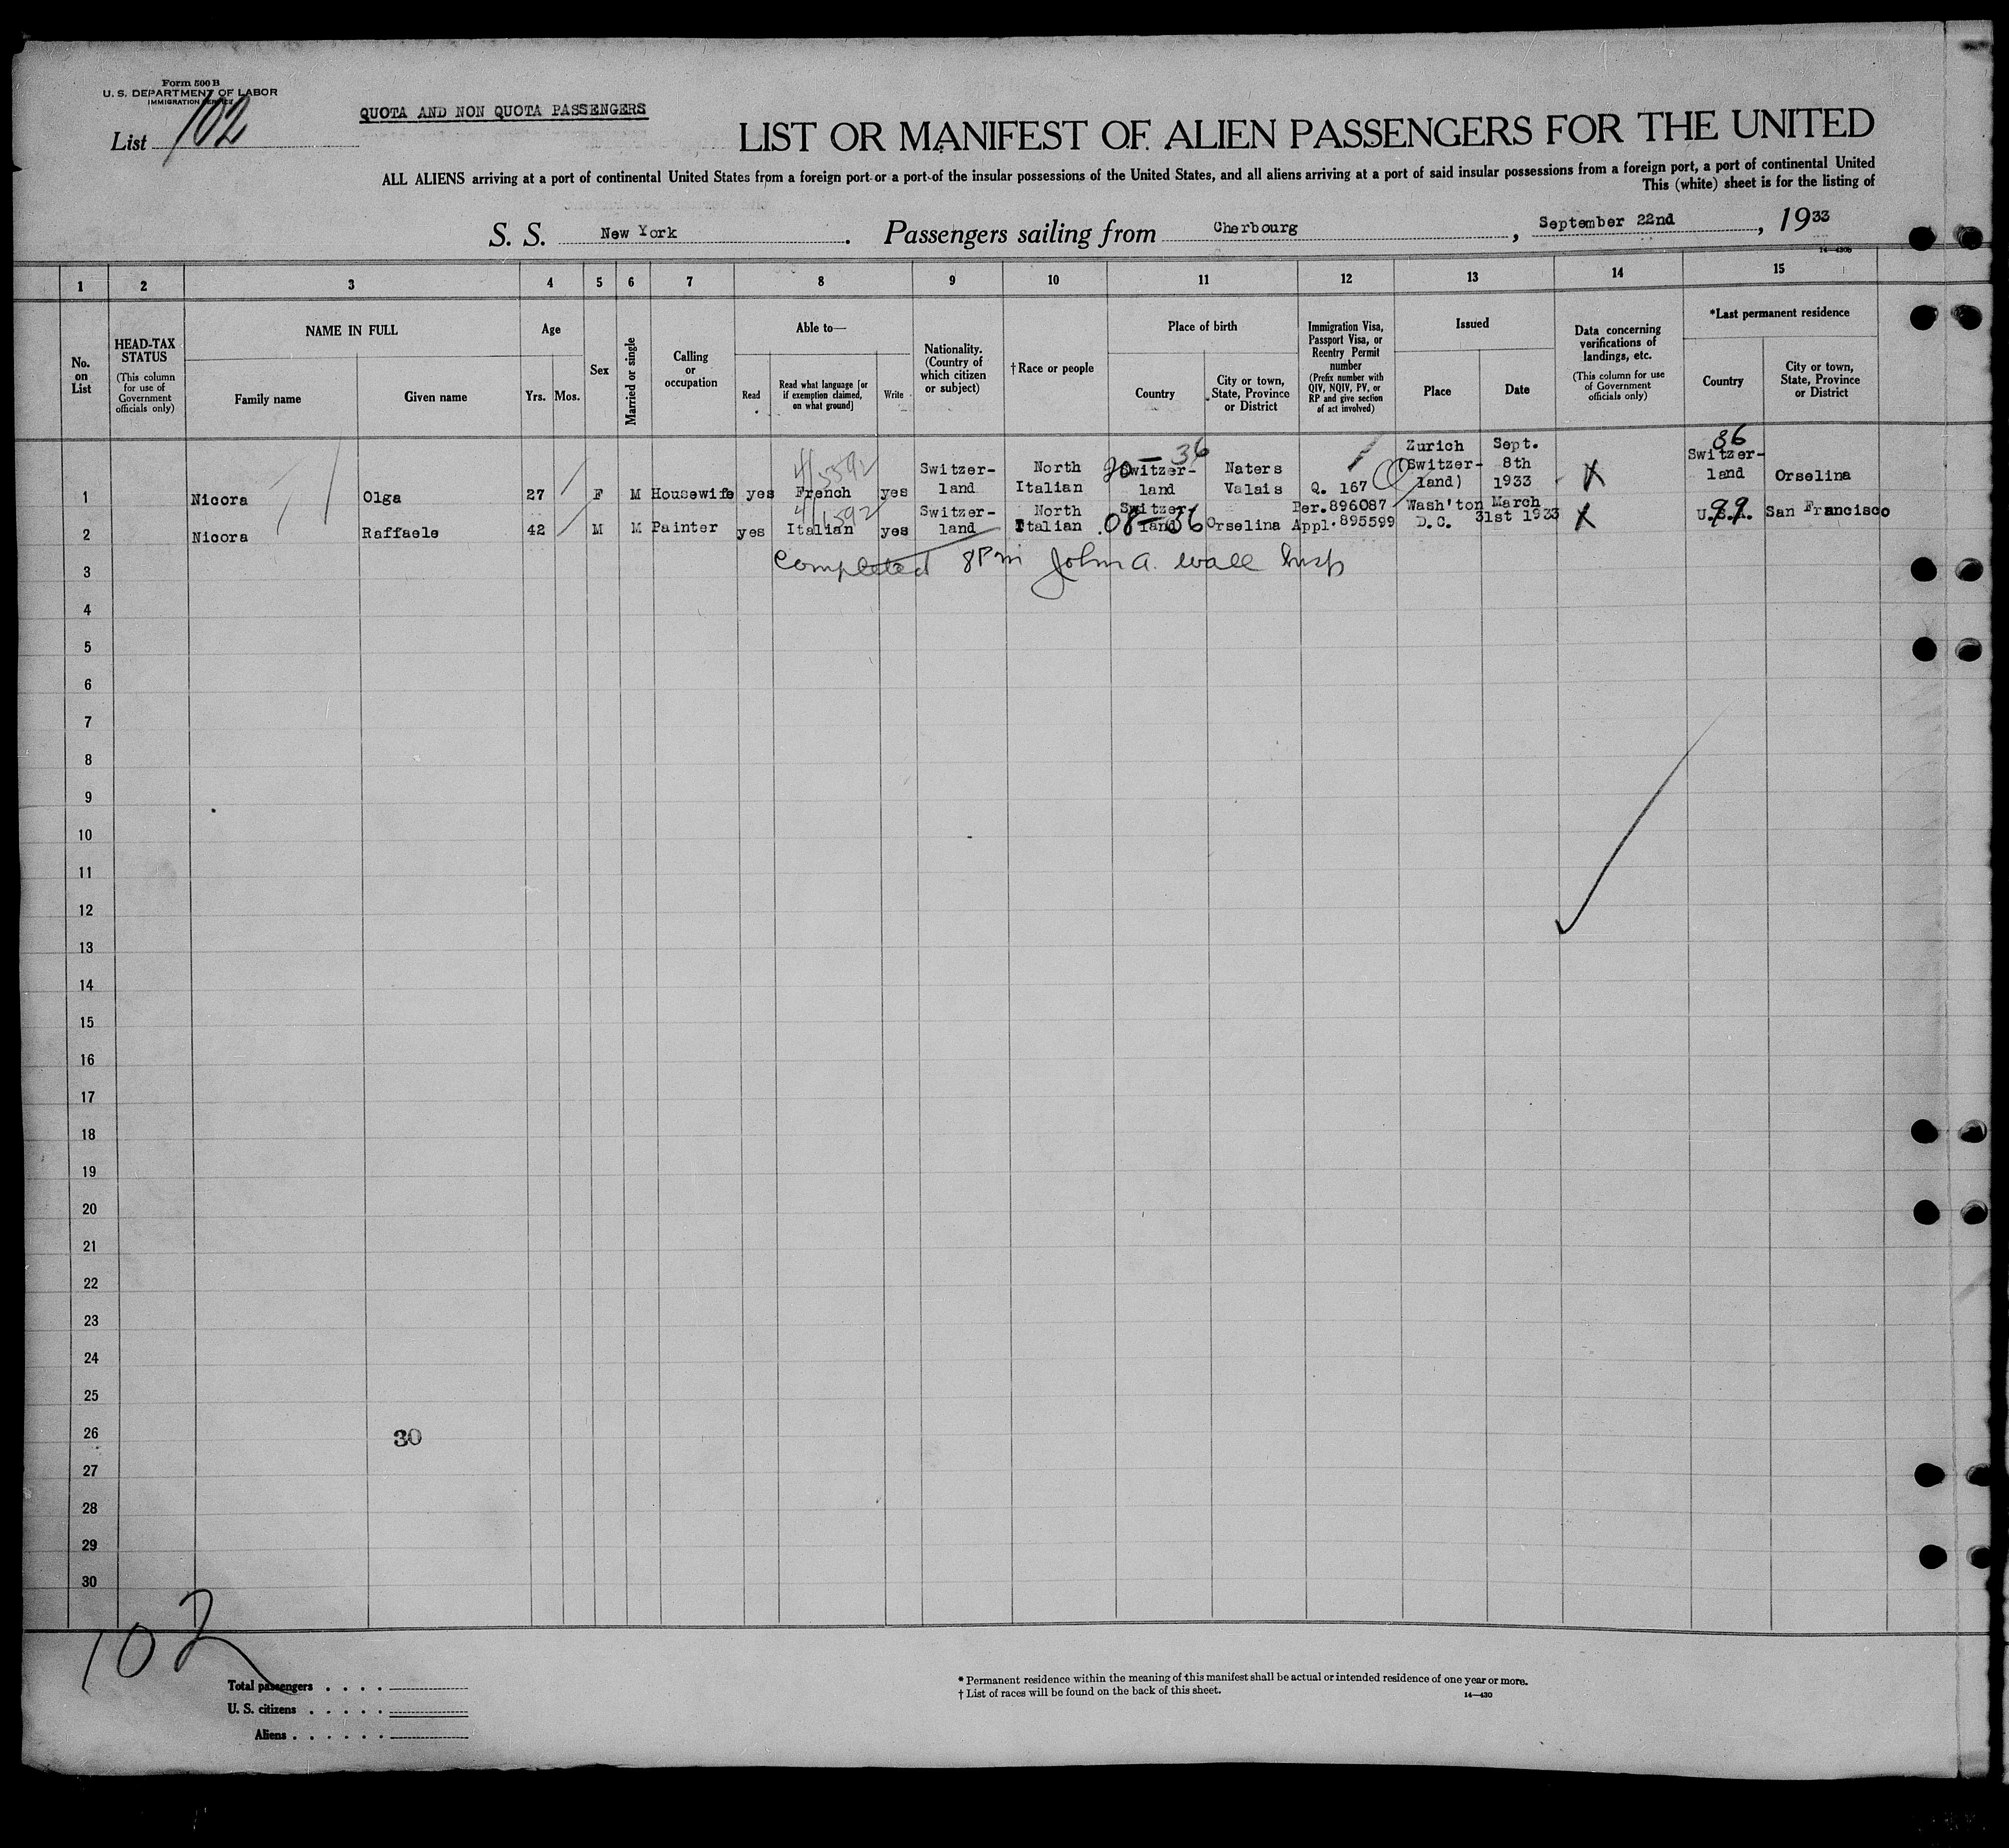 Form 500 B
U. S. DEPARTMENT OF LABOR
IMMIGRATION SERVICE
List 102
QUOTA AND NON QUOTA PASSENGERS
LIST OR MANIFEST OF ALIEN PASSENGERS FOR THE UNITED
ALL ALIENS arriving at a port of continental United States from a foreign port or a port of the insular possessions of the United States, and all aliens arriving at a port of said insular possessions from a foreign port, a port of continental United
This (white) sheet is for the listing of
S. S. New York. Passengers sailing from Cherbourg, September 22nd, 1933
14—430b
1 2 3 4 5 6 7 8 9 10 11 12 13 14 15
No. on List
HEAD-TAX STATUS
(This column for use of Government officials only)
NAME IN FULL
Family name
Given name
Age
Yrs. Mos.
Sex
Married or single
Calling or occupation
Able to—
Read
Read what language [or if exemption claimed, on what ground]
Write
Nationality. (Country of which citizen or subject)
†Race or people
Place of birth
Country
City or town, State, Province or District
Immigration Visa, Passport Visa, or Reentry Permit number
(Prefix number with QIV, NQIV, PV, or RP and give section of act involved)
Issued
Place
Date
Data concerning verifications of landings, etc.
(This column for use of Government officials only)
*Last permanent residence
Country
City or town, State, Province or District
1 Nicora Olga 27 F M Housewife yes French yes Switzer-land North Italian Switzer-land Naters Valais Q. 167 Zurich (Switzer-land) Sept. 8th 1933 X Switzer-land Orselina
20—36
86
2 Nicora Raffaele 42 M M Painter yes Italian yes Switzer-land North Italian Switzer-land Orselina Per.896087 Appl.895599 Wash'ton D.C. March 31st 1933 X U.S.A. San Francisco
08—36
99
3 Completed 8Pm John A. Wall Insp
4
5
6
7
8
9
10
11
12
13
14
15
16
17
18
19
20
21
22
23
24
25
26 30
27
28
29
30
102
Total passengers . . . .
U. S. citizens . . . . .
Aliens . . . . . .
* Permanent residence within the meaning of this manifest shall be actual or intended residence of one year or more.
† List of races will be found on the back of this sheet.
14—430